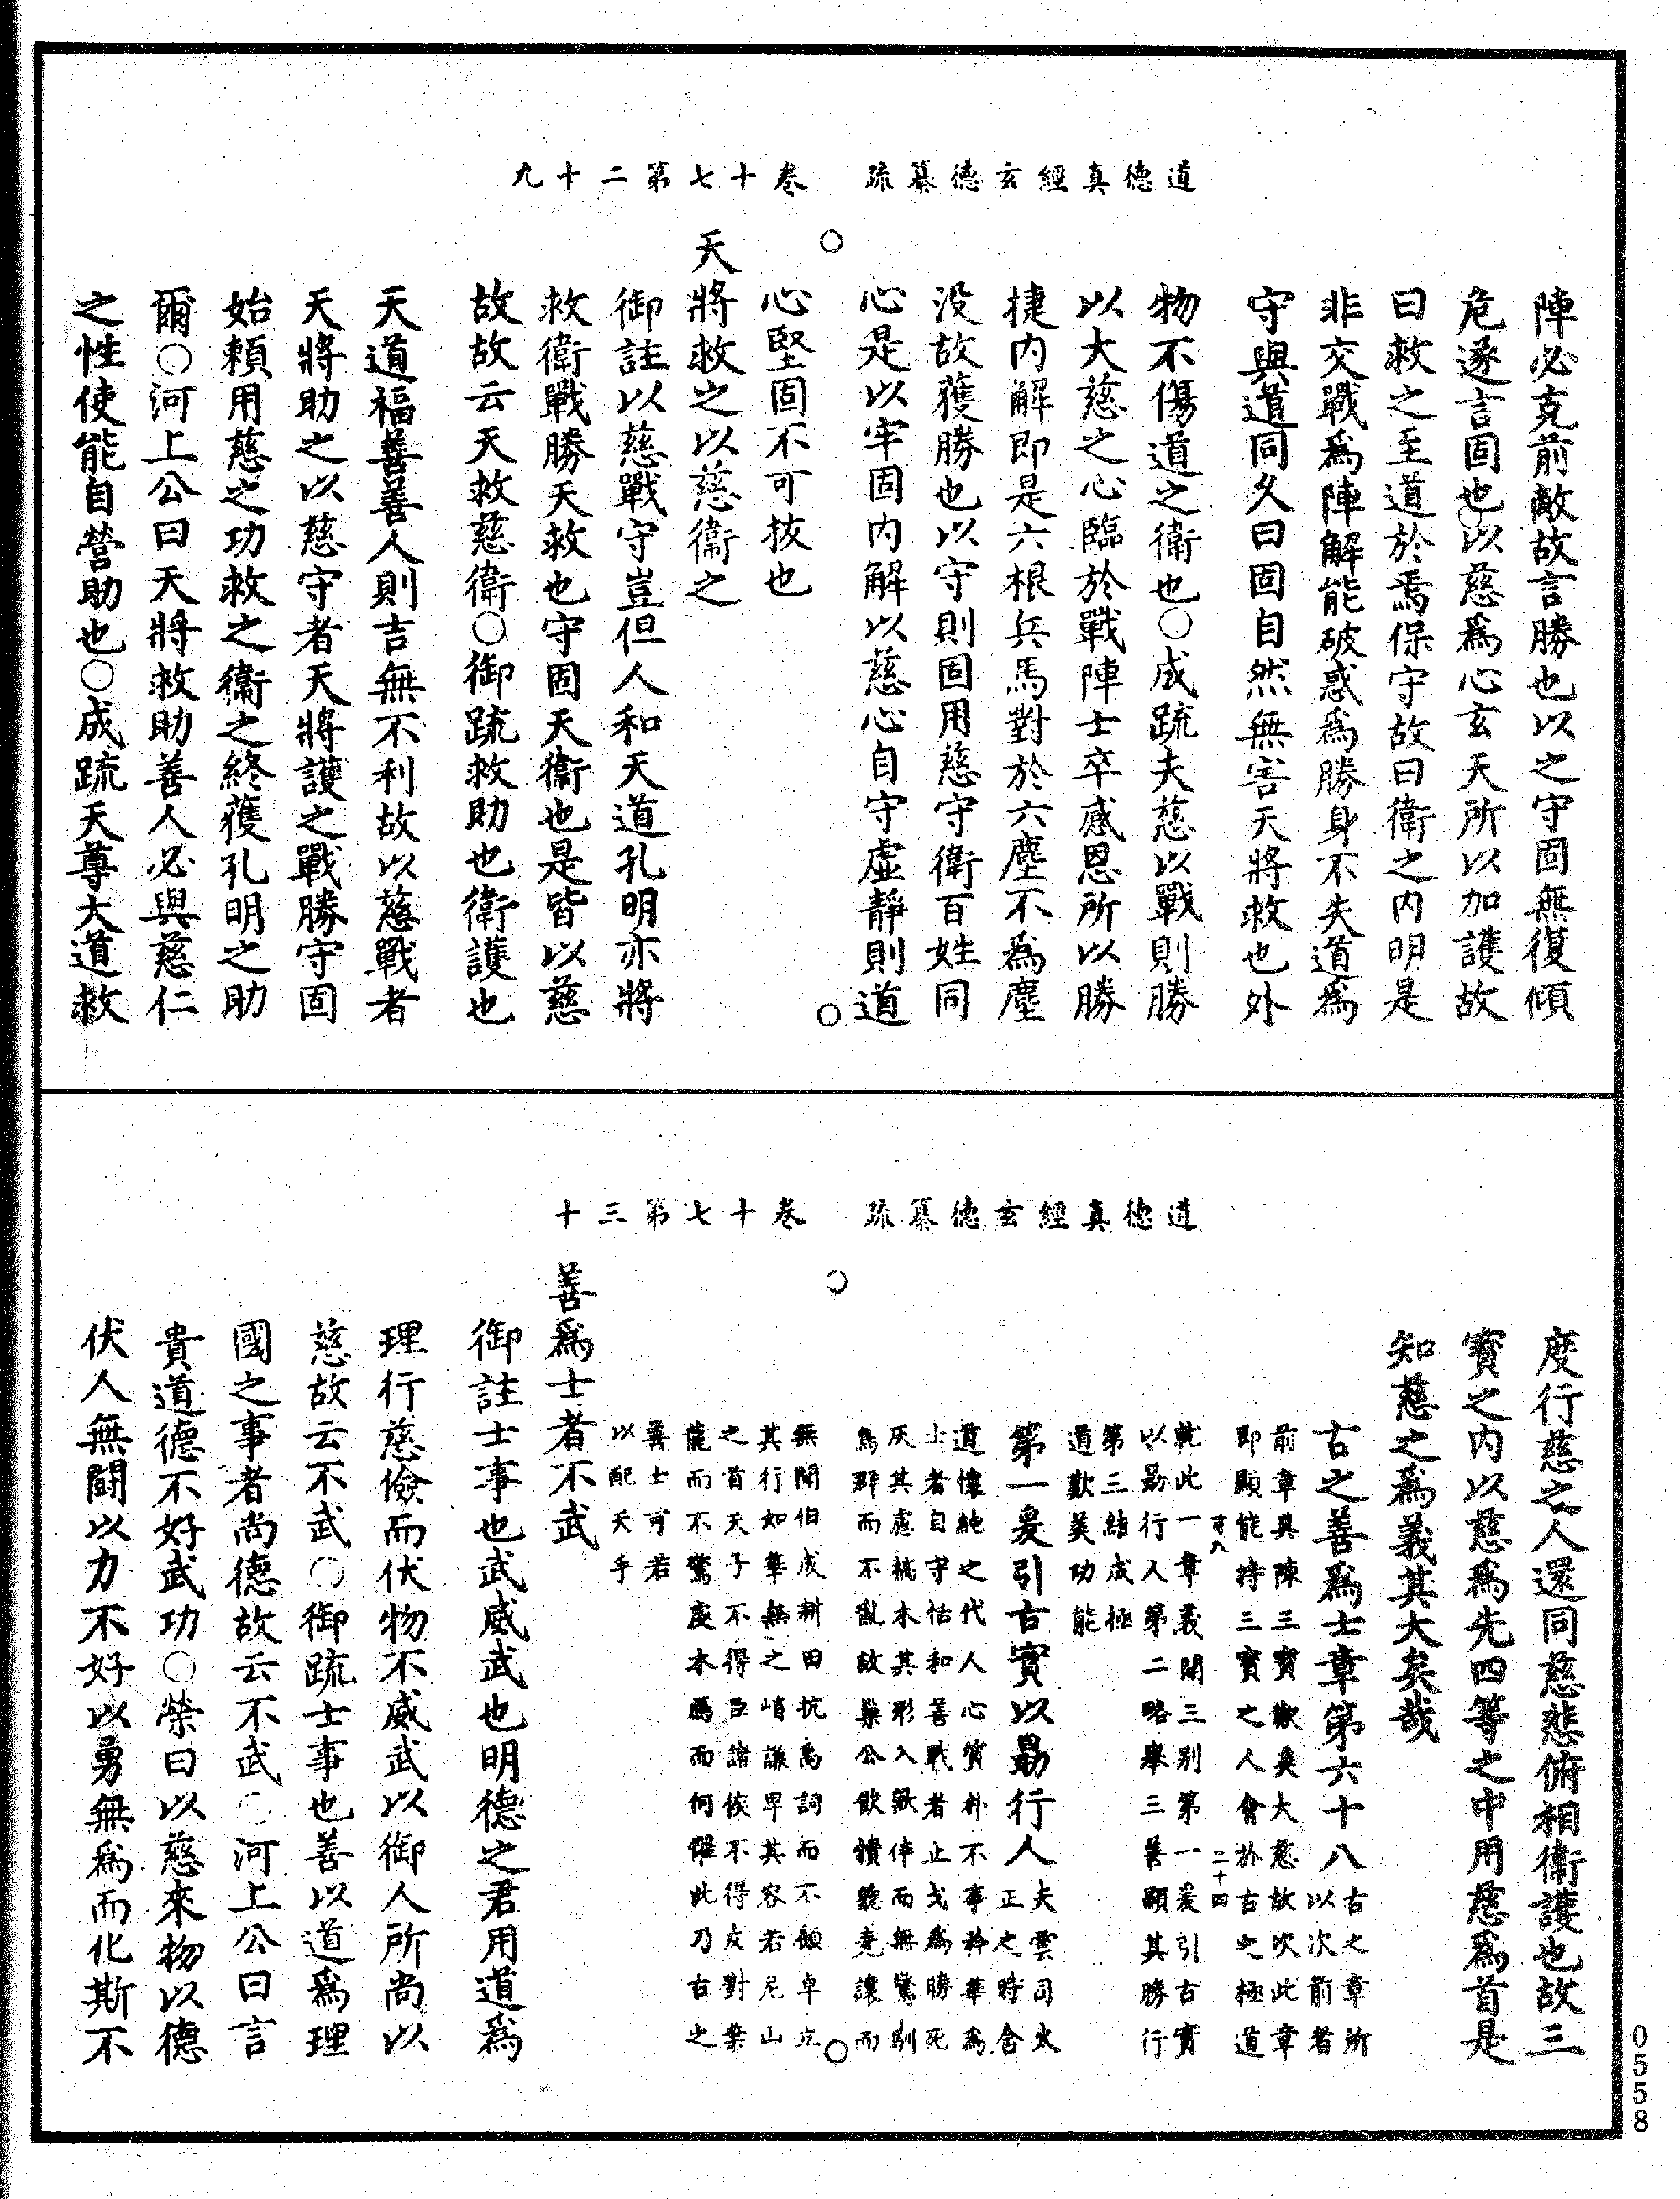 道德真經玄德纂疏　卷十七第二十九
陣必克前敵故言勝也以之守固無復傾
危遂言固也○以慈爲心玄天所以加護故
曰救之至道於焉保守故曰衛之內明是
非交戰爲陣解能破惑爲勝身不失道爲
守與道同久曰固自然無害天將救也外
物不傷道之衛也○成疏夫慈以戰則勝
以大慈之心臨於戰陣士卒感恩所以勝
捷內解即是六根兵馬對於六塵不爲塵
没故獲勝也以守則固用慈守衛百姓同
心是以牢固內解以慈心自守虛靜則道
心堅固不可抜也
天將救之以慈衛之
御註以慈戰守豈但人和天道孔明亦將
救衛戰勝天救也守固天衛也是皆以慈
故故云天救慈衛○御疏救助也衛護也
天道福善善人則吉無不利故以慈戰者
天將助之以慈守者天將護之戰勝守固
始賴用慈之功救之衛之終獲孔明之助
爾○河上公曰天將救助善人必與慈仁
之性使能自營助也○成疏天尊大道救
道德真經玄德纂疏　卷十七第三十
度行慈之人還同慈悲俯相衛護也故三
寶之內以慈爲先四等之中用慈爲首是
知慈之爲義其大矣哉
古之善爲士章第六十八古之章所以次前者
前章具陳三寶歎美大慈故次此章
即顯能持三寶之人會於古之極道
就此一章義開三別第一爰引古實
以勗行人第二略舉三善顯其勝行
第三結成極
道歎美功能
第一爰引古實以勗行人夫雲司太正之時含
道懷純之代人心質朴不事矜華爲
士者自守恬和善戰者止戈爲勝死
灰其慮槁木其形入獸倖而無驚馴
鳥群而不亂故巢公飲犢聽堯讓而
無聞伯成耕田抗禹詞而不顧卓立
其行如華無之峭謙卑其容若尼山
之首天子不得臣諸侯不得友對葉
龍而不驚處木鴈而何懼此乃古之
善士可若
以配天乎
善爲士者不武
御註士事也武威武也明德之君用道爲
理行慈儉而伏物不威武以御人所尚以
慈故云不武○御疏士事也善以道爲理
國之事者尚德故云不武○河上公曰言
貴道德不好武功○榮曰以慈來物以德
伏人無鬪以力不好以勇無爲而化斯不
0558